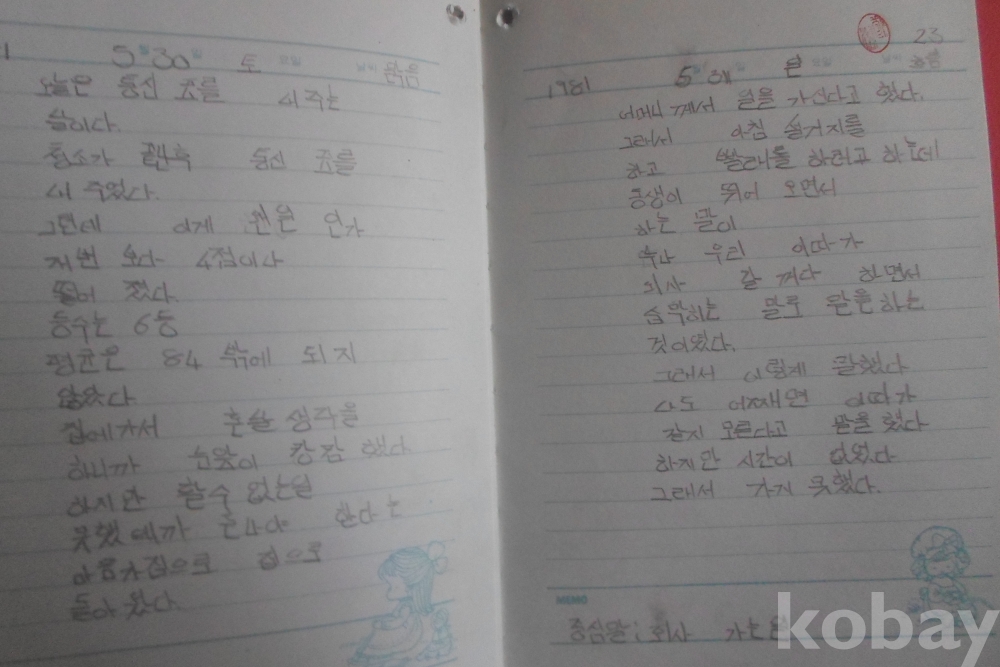 5월 30일 토 요일 날씨 맑음
오늘은 통신 표를 나누주는
날이다.
통신 표를
나 주었다.
그런데 이게 왼일 인가
저번 보다 4점이나
떨어 졌다.
등수는 6등
평균은 84 밖에 되지
않았다.
집에가서 혼날 생각을
하니까 눈앞이 캄캄 했다
하지만 할수 없는일
못했으니까 혼나야 한다는
마음가짐으로 집으로
돌아 왔다.
23
1981 5월 일 요일 날씨
어머니 께서 일을 가신다고 했다.
그래서 아침 설거지를
하고 빨래를 하려고 하는데
동생이 뛰어 오면서
하는 말이
누나 우리 이따가
회사 갈 꺼다 하면서
말로 말을하는
것이었다.
그래서 이렇게 말했다
나도 어쩌면 이따가
갈지 모른다고 말을 했다
하지만 시간이 없었다
그래서 가지 못했다.
MEMO
중심말; 회사 가는일
kobay